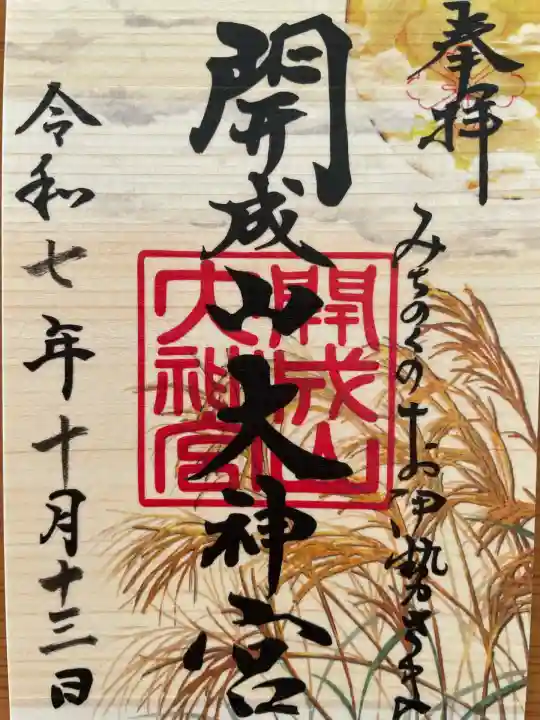 奉拝
みちのくのおお伊勢さま
開成山大神宮
開成山
大神宮
令和七年十月十三日